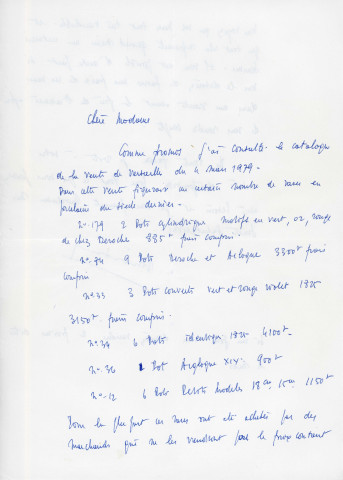 Chère Madame
Comme promis j'ai consulté le catalogue
de la vente de Versailles du 4 mars 1979.
Dans cette vente figurait un certain nombre de vases en
porcelaine du siècle dernier.
n° 179 2 Pots cylindrique motifs en vert, or, rouge
de chez Deroche 885f frais compris.
n° 34 9 Pots Deroche et 3300f frais
compris
n° 33 3 Pots couverts vert et rouge 1825
3150f frais compris.
n° 34 6 Pots identique 1825 4100f.
n° 36 1 Pot XIX. 900f
n° 12 6 Pots modèles 18cm, 15cm 1150f
Pour la plupart ces vases ont été achetés par des
marchands qui ne les vendront pas le prix coutant